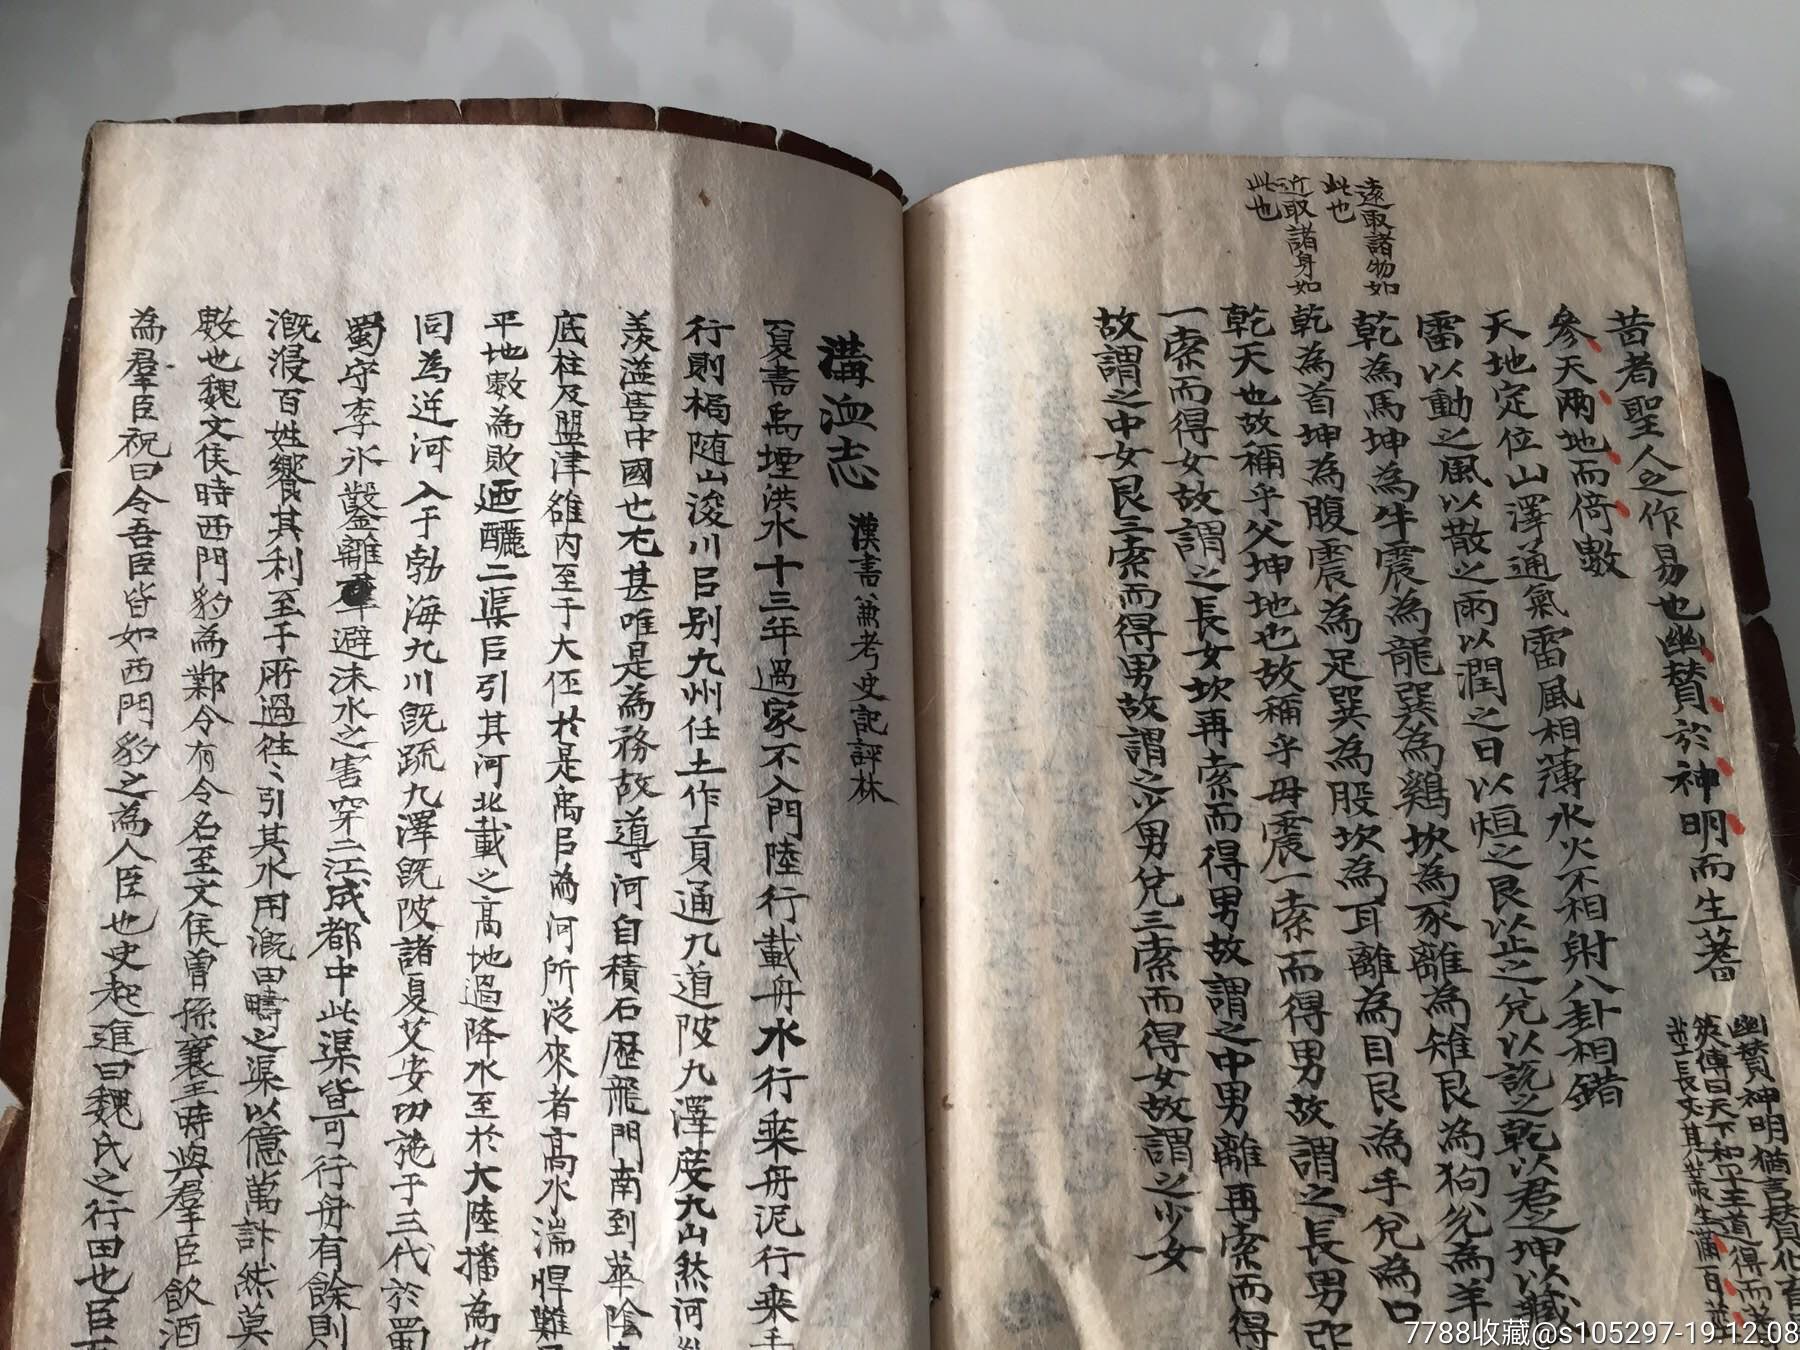 遠取諸物如
此也
近取諸身如
此也
昔者聖人之作易也幽賛於神明而生蓍
幽賛神明猶言賛化育
筴傳曰天下和平王道得而蓍
莖長丈其叢生滿百莖
參天兩地而倚數
天地定位山澤通氣雷風相薄水火不相射八卦相錯
雷以動之風以散之雨以潤之日以烜之艮以止之兌以說之乾以君之坤以藏
乾為馬坤為牛震為龍巽為鷄坎為豕離為雉艮為狗兌為羊
乾為首坤為腹震為足巽為股坎為耳離為目艮為手兌為口
乾天也故稱乎父坤地也故稱乎母震一索而得男故謂之長男巽
一索而得女故謂之長女坎再索而得男故謂之中男離再索而得
故謂之中女艮三索而得男故謂之少男兌三索而得女故謂之少女
溝洫志 漢書兼考史記評林
夏書禹堙洪水十三年過家不入門陸行載舟水行乘舟泥行乘
行則梮隨山浚川㠯別九州任土作貢通九道陂九澤度九山然河
羨溢害中國也尤甚唯是為務故導河自積石歷龍門南到華陰
底柱及盟津雒內至于大伾於是禹㠯為河所從來者高水湍悍難
平地數為敗迺釃二渠㠯引其河北載之高地過降水至於大陸播為九
同為迎河入于勃海九川既疏九澤既陂諸夏乂安功施于三代於蜀
蜀守李冰鑿離避沫水之害穿二江成都中此渠皆可行舟有餘則
溉浸百姓饗其利至于所過往〻引其水用溉田疇之渠以億萬計然莫
數也魏文侯時西門豹為鄴令有令名至文侯曾孫襄王時與羣臣飲酒
為羣臣祝曰令吾臣皆如西門豹之為人臣也史起進曰魏氏之行田也㠯
7788收藏@s105297-19.12.08